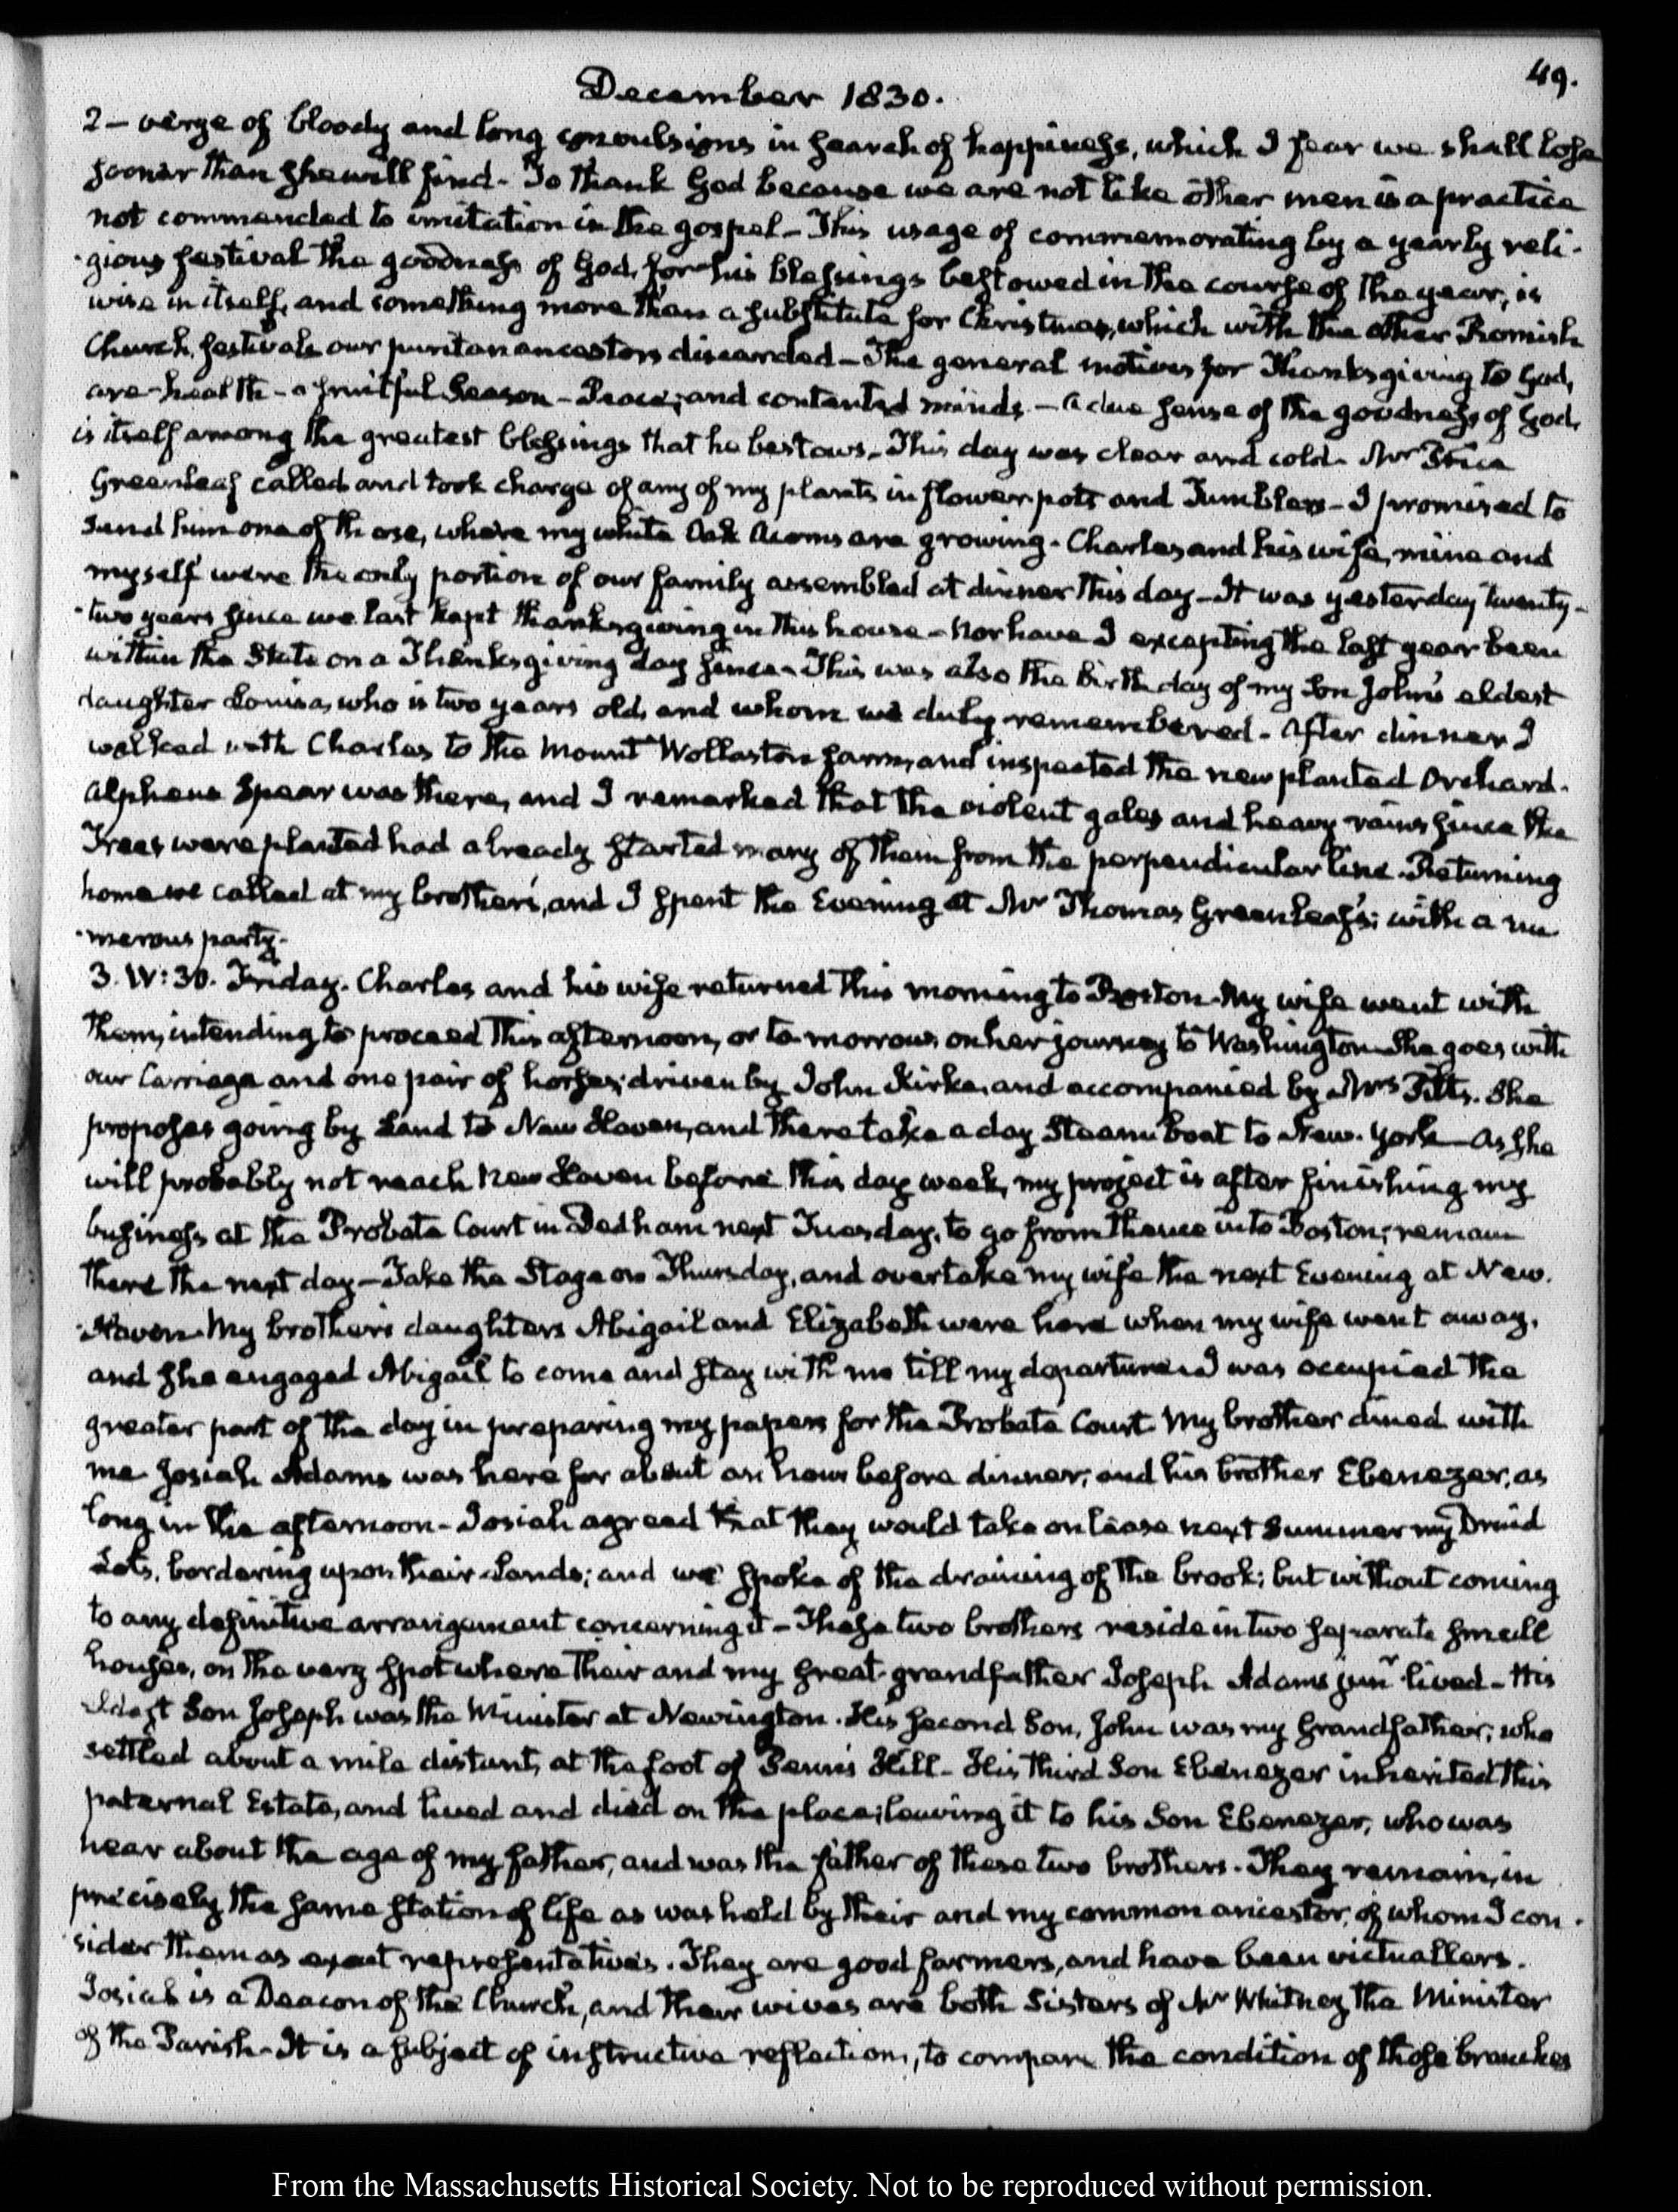 49.
December 1830.
2 — verge of bloody and long convulsions in search of happiness, which I fear we shall lose
sooner than she will find - To thank God because we are not like other men is a practice
not commended to imitation in the gospel - This usage of commemorating by a yearly reli-
-gious festival the goodness of God, for his blessings bestowed in the course of the year, is
wise in itself, and something more than a substitute for Christmas, which with the other Romish
Church festivals our puritan ancestors discarded - The general motives for Thanksgiving to God,
are - health - a fruitful Season - Peace; and contented minds - a due sense of the goodness of God,
is itself among the greatest blessings that he bestows. This day was clear and cold. Mr Price
Greenleaf called and took charge of any of my plants in flower pots and Tumblers - I promised to
send him one of those, where my white Oak Acorns are growing. Charles and his wife, mine and
myself were the only portion of our family assembled at dinner this day - It was yesterday twenty-
-two years since we last kept thanksgiving in this house - nor have I excepting the last year been
within the State on a Thanksgiving day since - This was also the birth day of my Son John's eldest
daughter Louisa, who is two years old, and whom we duly remembered. After dinner I
walked with Charles to the Mount Wollaston farm, and inspected the new planted Orchard.
Alpheus Spear was there, and I remarked that the violent gales and heavy rains since the
Trees were planted had already started many of them from the perpendicular line. Returning
home we called at my brother's, and I spent the Evening at Mr Thomas Greenleaf's; with a nu
-merous party.
3. IV:30. Friday. Charles and his wife returned this morning to Boston. My wife went with
them, intending to proceed this afternoon, or to-morrow on her journey to Washington. She goes with
our Carriage and one pair of horses; driven by John Kirke, and accompanied by Mrs Fitts. She
proposes going by Land to New Haven, and there take a day Steam boat to New-York - As she
will probably not reach New Haven before this day week, my project is after finishing my
business at the Probate Court in Dedham next Tuesday, to go from thence into Boston; remain
there the next day - Take the Stage on Thursday, and overtake my wife the next Evening at New-
-Haven. My brother's daughters Abigail and Elizabeth were here when my wife went away,
and she engaged Abigail to come and stay with me till my departure. I was occupied the
greater part of the day in preparing my papers for the Probate Court. My brother dined with
me. Josiah Adams was here for about an hour before dinner; and his brother Ebenezer, as
long in the afternoon - Josiah agreed that they would take on lease next Summer my Druid
Lots, bordering upon their Lands; and we spoke of the draining of the brook; but without coming
to any definitive arrangement concerning it - These two brothers reside in two separate small
houses, on the very spot where their and my great-grandfather Joseph Adams junr lived - His
eldest Son Joseph was the Minister at Newington. His second Son, John was my Grandfather; who
settled about a mile distant, at the foot of Penn's Hill - His third Son Ebenezer inherited this
paternal Estate, and lived and died on the place; leaving it to his Son Ebenezer, who was
near about the age of my father, and was the father of these two brothers. They remain, in
precisely the same station of life as was held by their and my common ancestor, of whom I con-
-sider them as exact representatives. They are good farmers, and have been victuallers.
Josiah is a Deacon of the Church, and their wives are both Sisters of Mr Whitney the Minister
of the Parish - It is a subject of instructive reflection, to compare the condition of those branches
From the Massachusetts Historical Society. Not to be reproduced without permission.